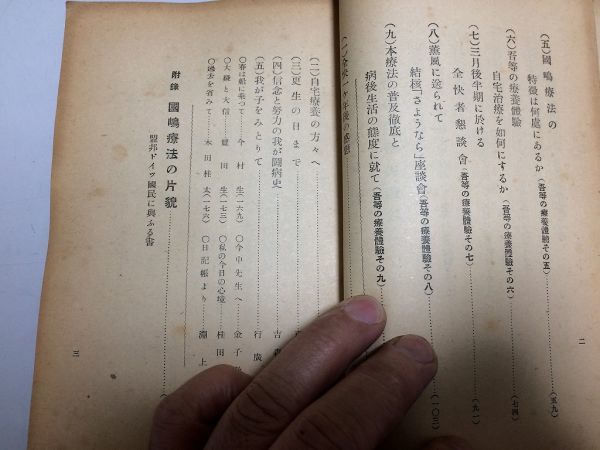 (五)國嶋療法の
特徴は何處にあるか(吾等の療養體驗その五)……(五九)
(六)吾等の療養體驗
自宅治療を如何にするか(吾等の療養體驗その六)……(七四)
(七)三月後半期に於ける
全快者懇談會(吾等の療養體驗その七)……(九一)
(八)薰風に送られて
結核「さようなら」座談會(吾等の療養體驗その八)……(一〇三)
(九)本療法の普及徹底と
病後生活の態度に就て(吾等の療養體驗その九)
二
(二)自宅療養の方々へ
(三)更生の日まで
(四)信念と努力の我が鬪病史……吉
(五)我が子をみとりて……行廣
〇春は船に乘つて……今村 生(一六九) 〇今中先生へ……金子
〇大疑と大信……豐田 生(一七三) 〇私の今日の心境……桂田
〇過去を省みて……木田桂太(一七六) 〇日記帳より……淵上
附錄 國嶋療法の片貌
盟邦ドイツ國民に與ふる書
三